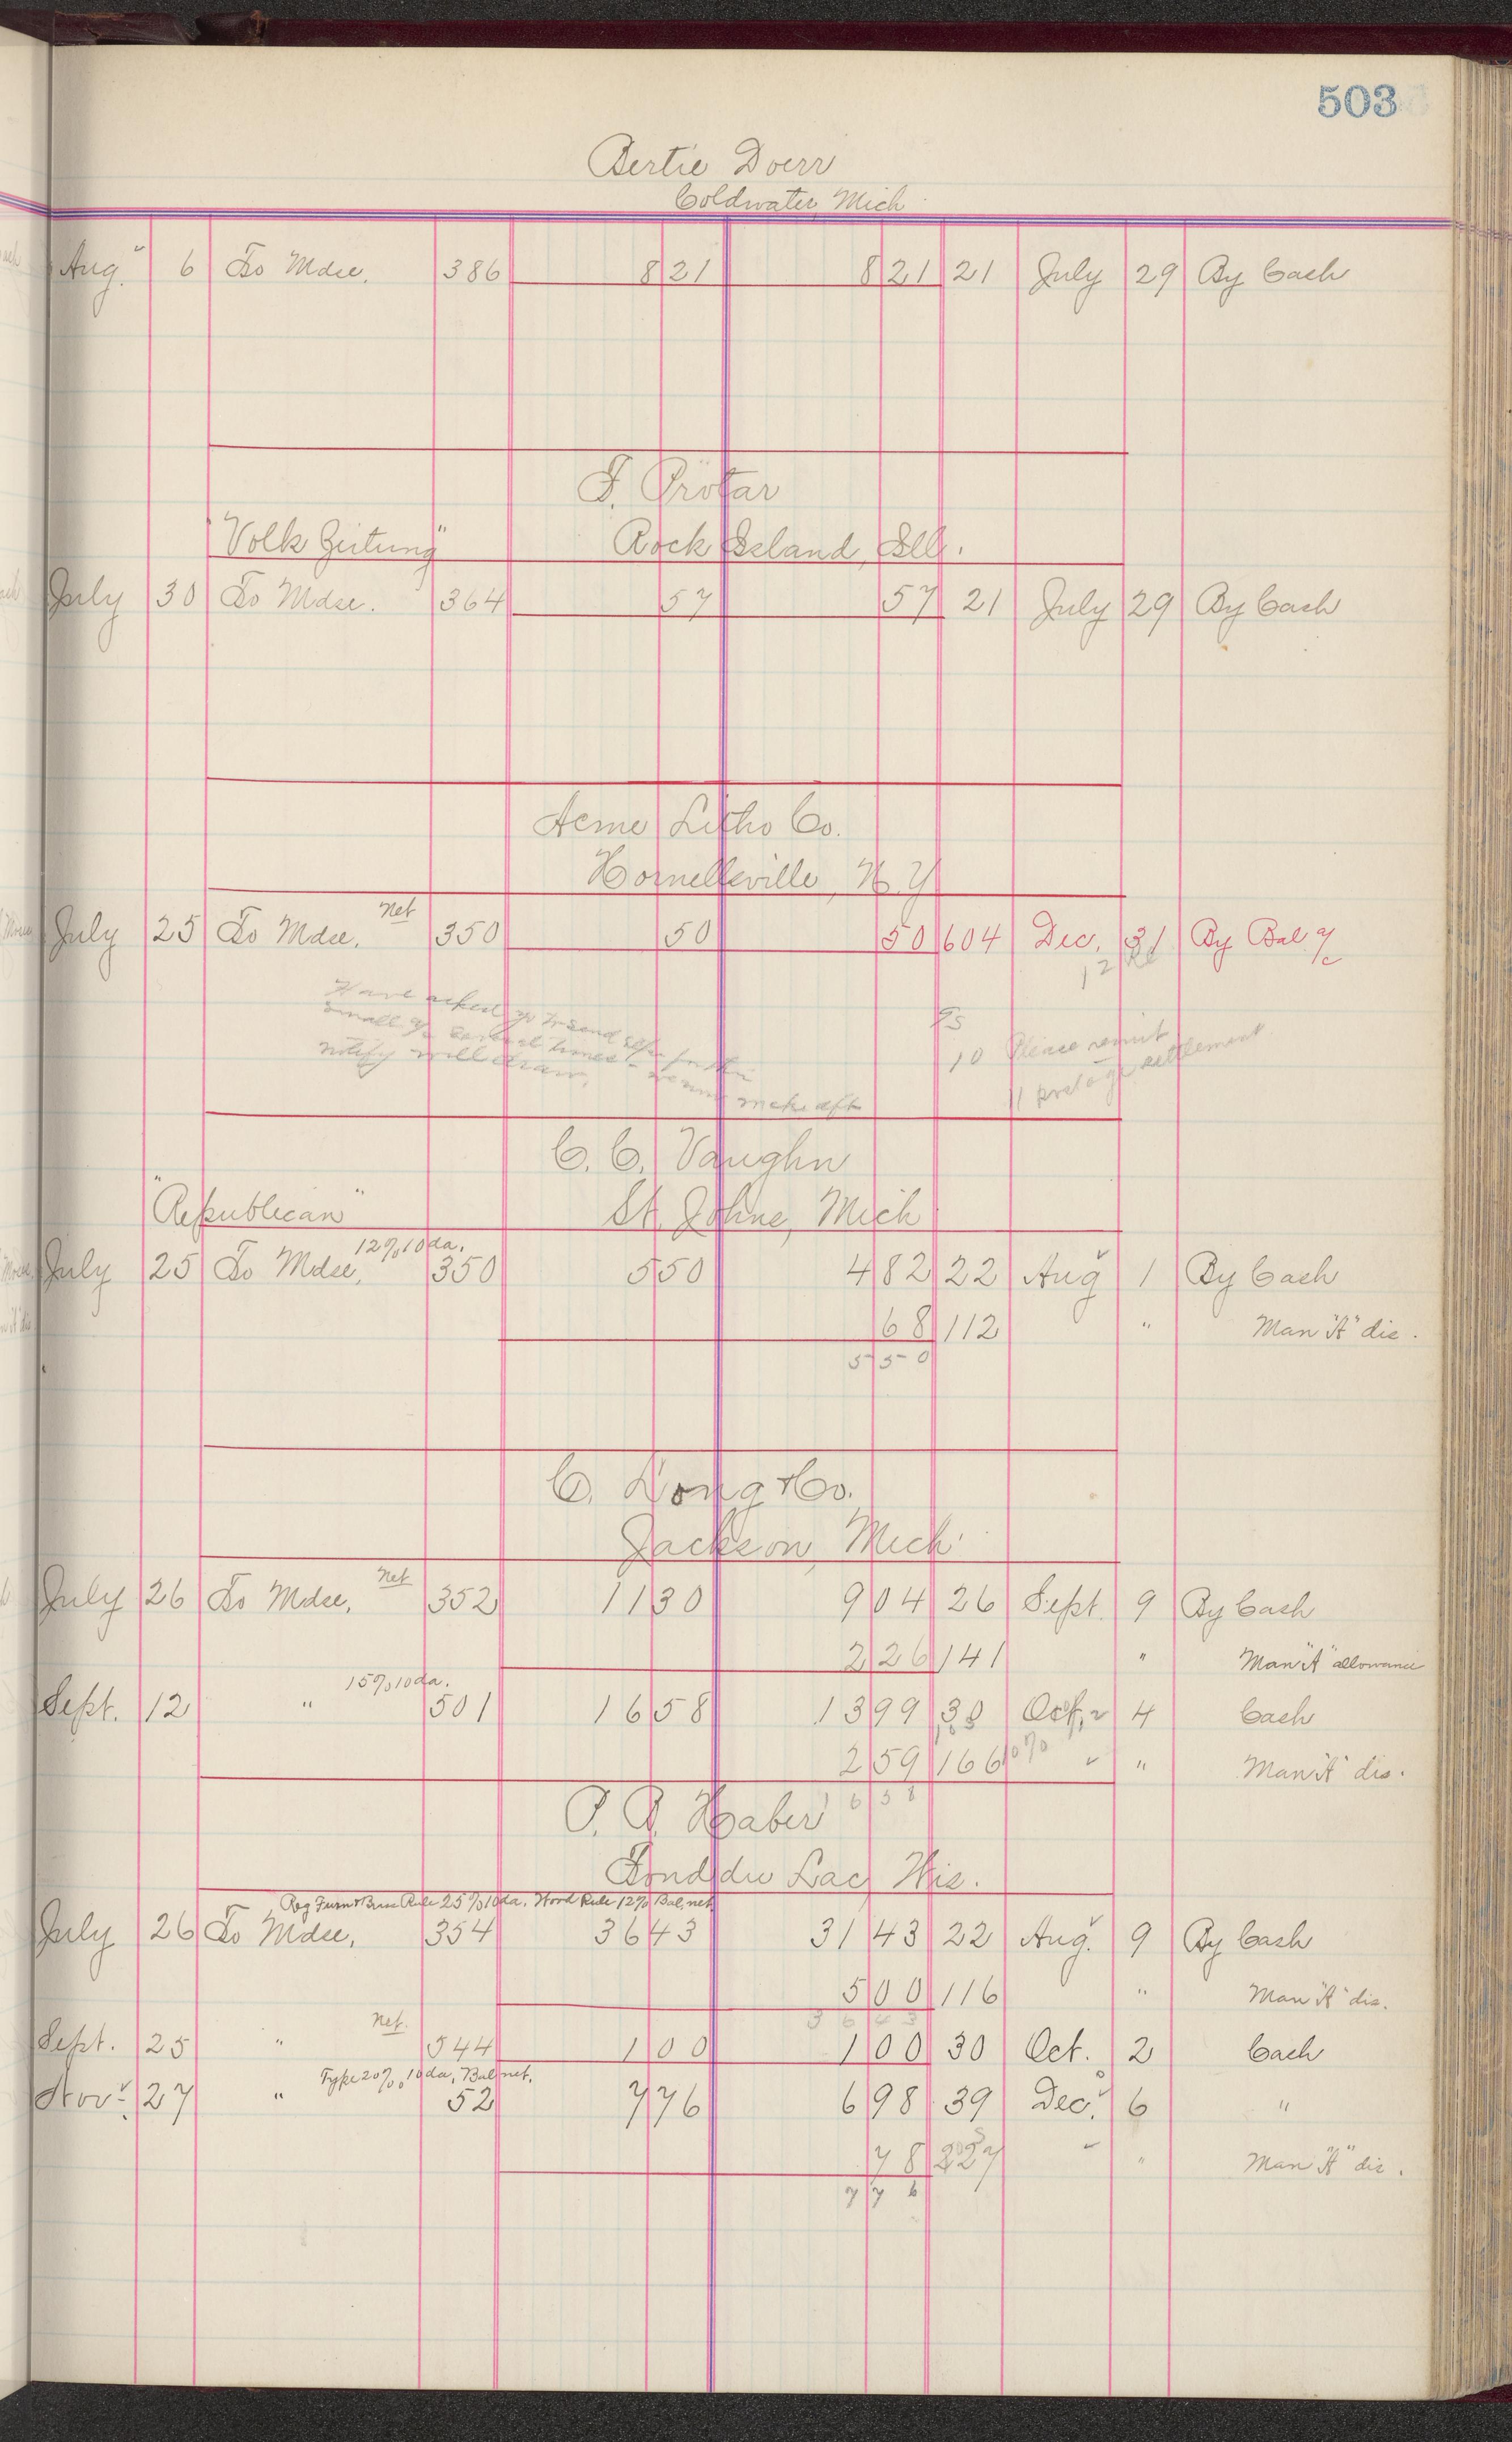 503
Bertie Doerr
Coldwater Mich
Aug. 6 To Mdse. 386 8 21 8 21 21 July 29 By Cash
F. Protar
"Volk Zeitung" Rock Island, Ill.
July 30 To Mdse. 364 57 57 21 July 29 By Cash
Acme Litho Co.
Hornellsville, N.Y
Net
July 25 To Mdse. 350 50 50 604 Dec. 31 By Bal a/c
Have asked to send
small a/c several times
notify will draw.
make dft
10 Please remit
11 settlement
C. C. Vaughn
"Republican" St. Johns, Mich
12% 10 da.
July 25 To Mdse, 350 5 50 4 82 22 Aug 1 By Cash
68 112 " Man "A" dis.
5 50
C. Long & Co.
Jackson, Mich
Net
July 26 To Mdse, 352 11 30 9 04 26 Sept. 9 By Cash
2 26 141 " Man "A" allowance
15% 10 da.
Sept. 12 " 501 16 58 13 99 30 Oct. 4 Cash
2 59 166 " Man "A" dis.
6 58
P. B. Haber
Fond du Lac, Wis.
Reg Furn & Brass Rule 25% 10 da, Wood Rule 12% Bal, net
July 26 To Mdse, 354 36 43 31 43 22 Aug. 9 By Cash
5 00 116 " Man "A" dis.
36 43
Net.
Sept. 25 " 544 1 00 1 00 30 Oct. 2 Cash
Type 20% 10 da, Bal net.
Nov. 27 " 52 7 76 6 98 39 Dec. 6 "
78 227 " Man "A" dis.
7 76